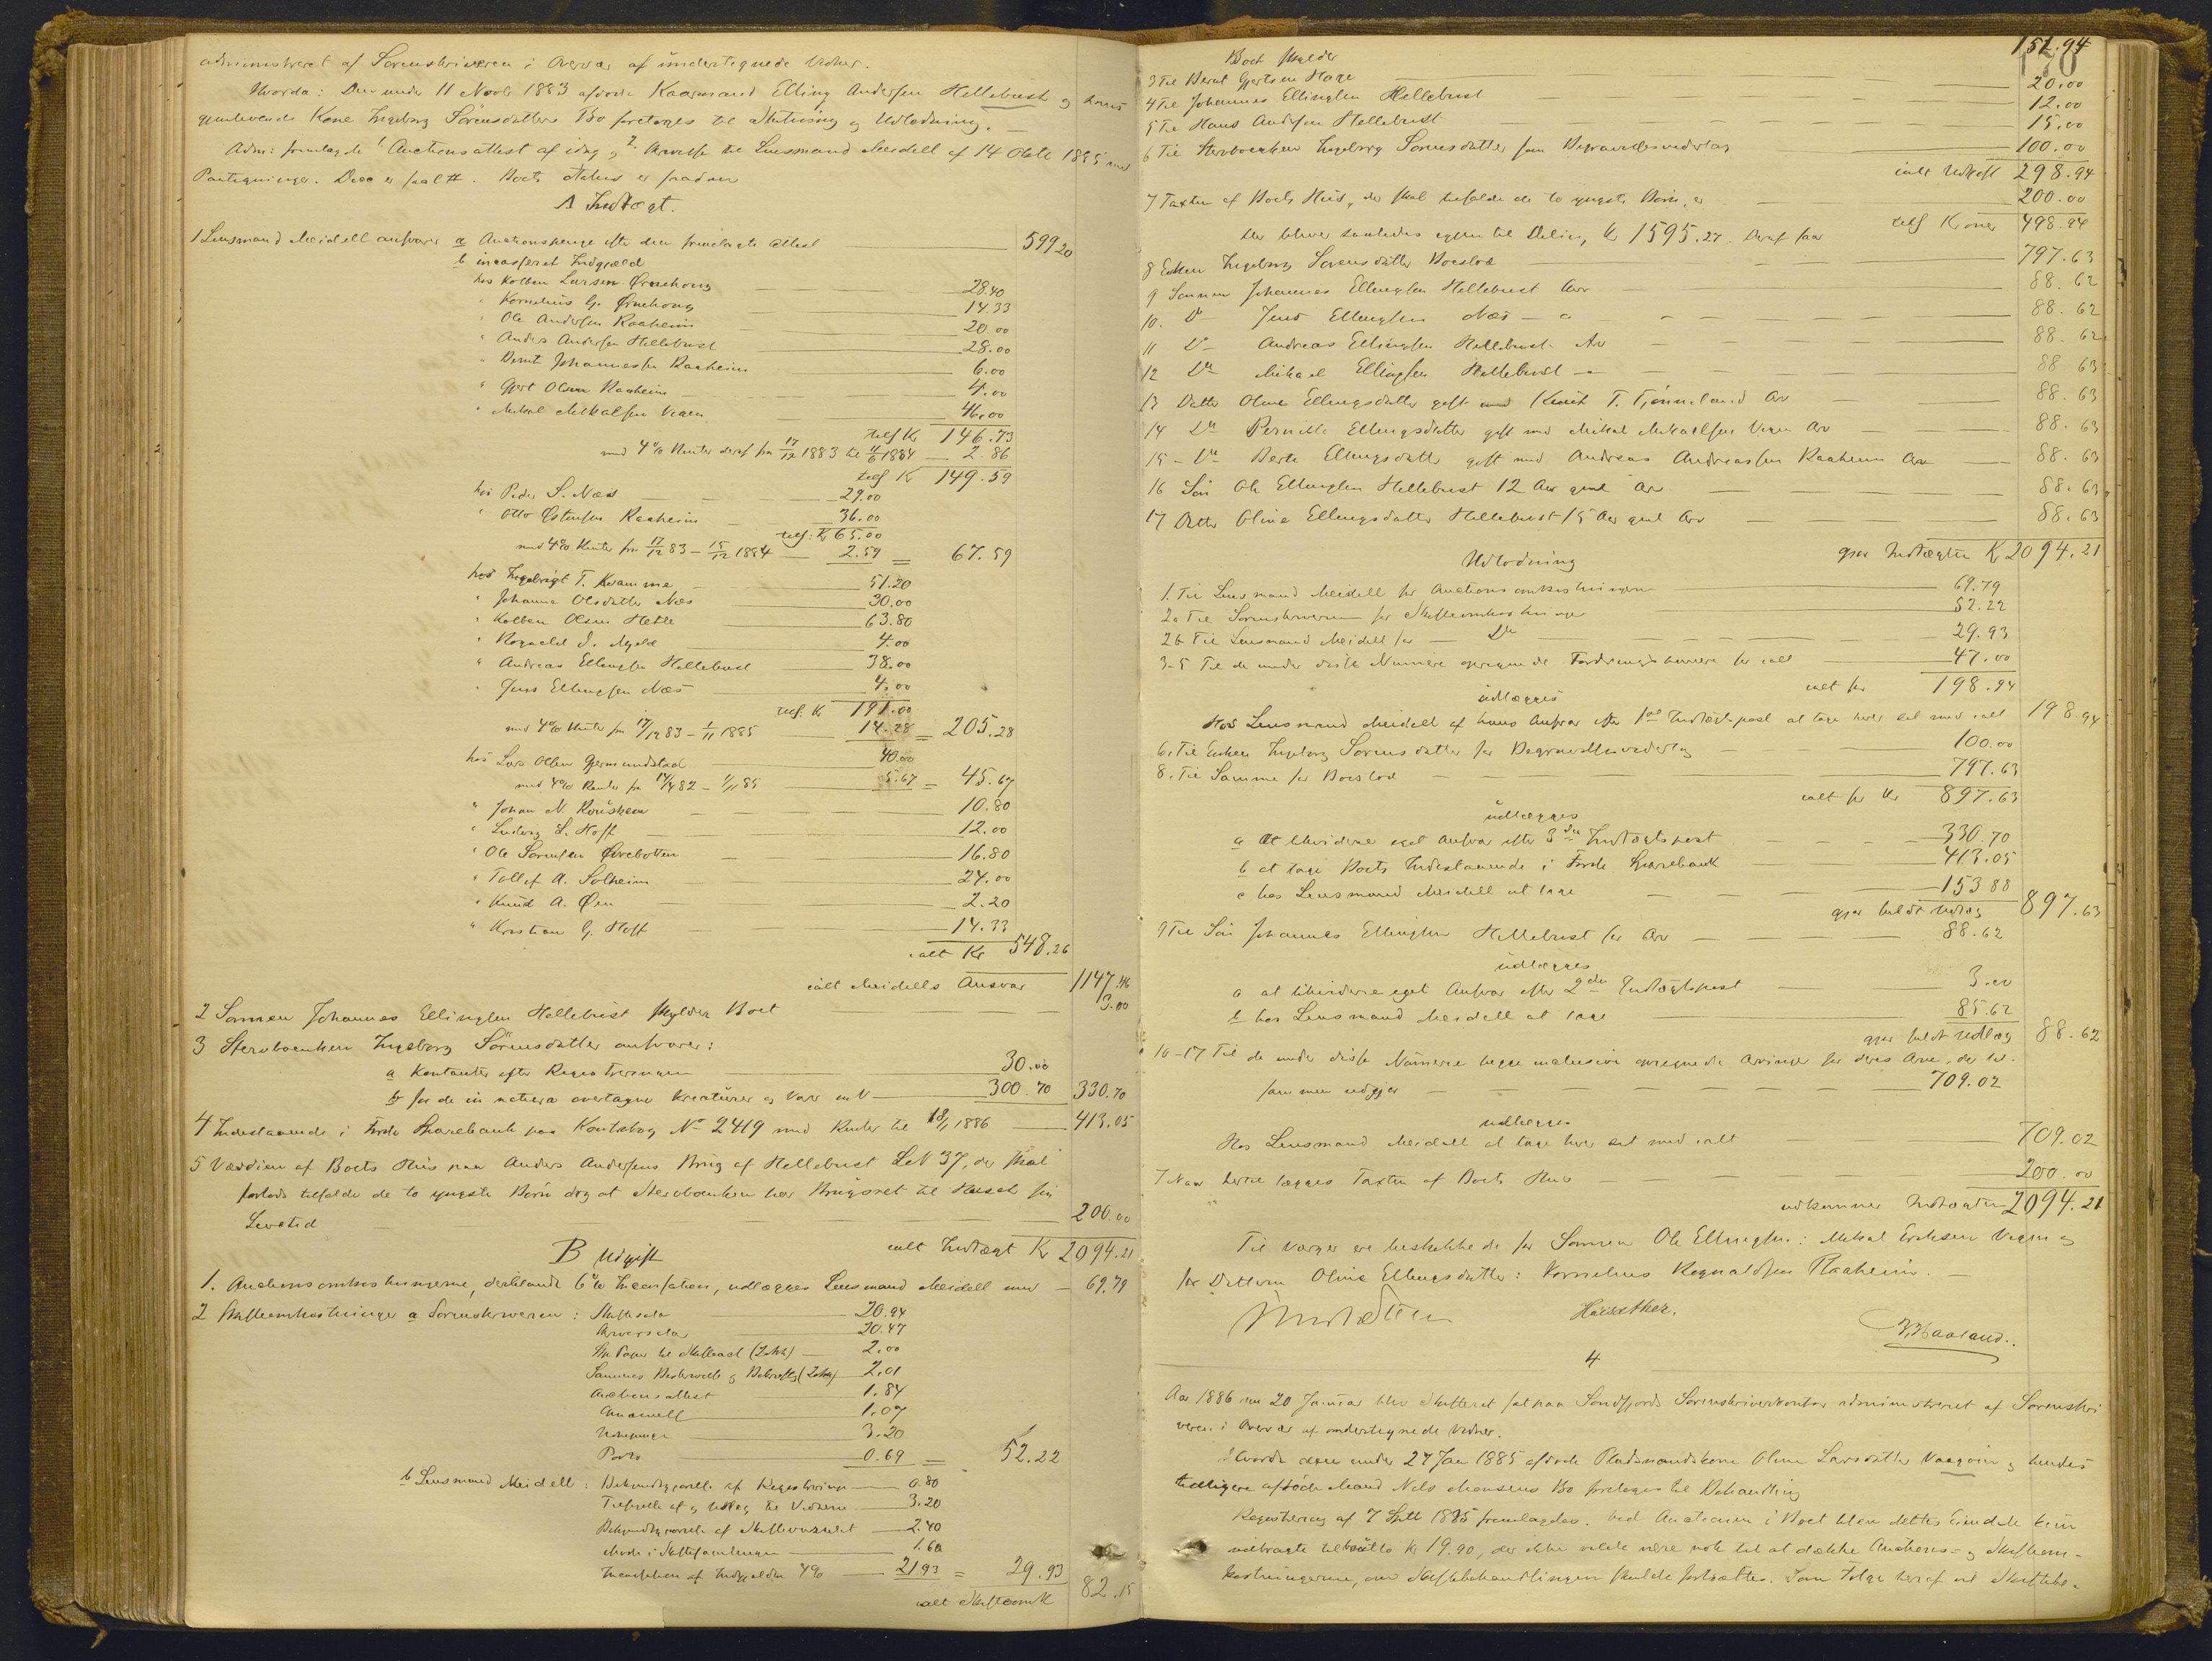 administreret af Sorenskriveren i Overvær af undertegnede Vidner.
Hvorda: Den under 11 Novbr 1883 afdøde Kaarmand Elling Andersen Hellebust og hans
gjenlevende Kone Ingeborg Sørensdatters Bo foretoges til Slutning og Udlodning. —
Adm: fremlagde 1 Auctionsattest af idag, 2 Skrivelse til Lensmand Meidell af 14 Oktb 1885 med
Paategninger. Boets Status er saadan
A Indtægt.
1 Lensmand Meidell ansvarer a Auctionspenge efter den fremlagte Attest 599 20
b incasseret Indgjæld
hos Kolben Larsen Ørnehoug 28.40
" Kornelius G. Ørnehoug 14.33
" Ole Andersen Raaheim 20.00
" Anders Andersen Hellebust 28.00
" Bernt Johannessen Raaheim 6.00
" Gjert Olsen Raaheim 4.00
" Mikal Mikalsen Vegen 46.00
tils Kr 146.73
med 4% Renter deraf fra 17/12 1883 til 11/6 1884 2.86
tils K 149.59
hos Peder S. Næs 29.00
" Otto Østensen Raaheim 36.00
tils: Kr 65.00
med 4% Renter fra 17/12 83 – 15/12 1884 2.59 = 67.59
hos Ingebrigt T. Kvamme 51.20
" Johanne Olsdatter Næs 30.00
" Kolben Olsen Hetle 63.80
" Ragnald I. 4.00
" Andreas Ellingsen Hellebust 38.00
" Jens Ellingsen Næs 4.00
tils. Kr 191.00
med 4% Renter fra 17/12 83 – 1/11 1885 14.28 = 205.28
hos Lars Olsen Gjermundstad 40.00
med 4% Renter fra 14/4 82 – 1/11 85 5.67 = 45.67
" Johan N. 10.80
" Ludvig L. Hoff 12.00
" Ole Sørensen Ørebotten 16.80
" Tollef A. Solheim 24.00
" Knud A. Øen 2.20
" Kristian G. Hoff 14.33
ialt Kr 548.26
ialt Meidells Ansvar 1147.46
2 Sønnen Johannes Ellingsen Hellebust skylder Boet 3.00
3 Stervboenken Ingeborg Sørensdatter ansvarer:
a Kontanter efter Registreringen 30.00
b for de in natura overtagne Kreaturer og Varer m.V 300.70 330.70
4 Indestaaende i Førde Sparebank paa Kontrabog No 2419 med Renter til 18/1 1886 413.05
5 Værdien af Boets Hus paa Anders Andersens Brug af Hellebust LN 37, der skal
forlods tilfalde de to yngste Børn dog at Stervboenken har Brugsret til Huset sin
Levetid 200.00
ialt Indtægt Kr 2094.21
B Udgift
1. Auctionsomkostningerne, deriblandt 6% Incassation, udlægges Lensmand Meidell med — 69.79
2 Skifteomkostninger a Sorenskriveren: Skiftesalær 20.94
Arvesalær 20.47
Stp Papir til Skifteact (2 Ark) 2.00
Sammes Beskrivelse & Bekræft (2 Ark) 2.01
Auctionsattest 1.84
1.07
3.20
Porto 0.69 = 52.22
b Lensmand Meidell: Bekjendtgjørelse af Registrering 0.80
Tilsigelse af og Udlæg til Vidnerne 3.20
Bekjendtgjørelse af 2.40
Møde i Skiftesamlingen 1.60
Incassation af Indgjælden 4% 21.93 = 29.93
ialt Skifteomk 82.15
152.94
170
Boet skylder
3 Til Bernt Gjertsen Hage 20.00
4 Til Johannes Ellingsen Hellebust 12.00
5 Til Hans Andersen Hellebust 15.00
6 Til Stervboenken Ingeborg Sørensdatter som Begravelsesvederlag 100.00
ialt Udgift 298.94
7 Taxten af Boets Hus, der skal tilfalde de to yngste Børn, er 200.00
tils Kroner 498.94
Der bliver saaledes igjen til Deling Kr 1595.27. Deraf faar
8 Enken Ingeborg Sørensdatter Boeslod 797.63
9 Sønnen Johannes Ellingsen Hellebust Arv 88.62
10. Do Jens Ellingsen Næs — " 88.62
11 Do Andreas Ellingsen Hellebust Arv 88.62
12 Do Mikael Ellingsen Hellebust — " 88.63
13 Datter Oline Ellingsdatter gift med Knut T. Tjønneland Arv 88.63
14 Do Pernille Ellingsdatter gift med Mikal Mikaelsen Vegen Arv 88.63
15 – Do Berte Ellingsdatter gift med Andreas Andreassen Raaheim Arv 88.63
16 Søn Ole Ellingsen Hellebust 12 Aar gml Arv 88.63
17 Datter Oline Ellingsdatter Hellebust 15 Aar gml Arv 88.63
gjør Indtægten Kr 2094.21
Udlodning
1. Til Lensmand Meidell for Auctionsomkostningerne 69.79
2a Til Sorenskriveren for Skifteomkostninger 52.22
2b Til Lensmand Meidell for — Do 29.93
3–5 Til de under disse Numere opregnede Fordringshavere for ialt 47.00
ialt for 198.94
udlægges
Hos Lensmand Meidell af hans Ansvar efter 1ste Indtægtspost at tage hver sit med ialt 198.94
6. Til Enken Ingeborg Sørensdatter for Begravelsesvederlag 100.00
8. Til Samme for Boeslod 797.63
ialt for Kr 897.63
udlægges
a At likvidere eget Ansvar efter 3die Indtægtspost 330.70
b at tage Boets Indestaaende i Førde Sparebank 413.05
c hos Lensmand Meidell at tage 153 88
gjør fuldt Udlæg 897.63
9 Til Søn Johannes Ellingsen Hellebust for Arv 88.62
udlægges
a at likvidere eget Ansvar efter 2den Indtægtspost 3.00
b hos Lensmand Meidell at tage 85.62
gjør fuldt Udlæg 88.62
10–17 Til de under disse Numere begge inclusive opregnede Arvinger for deres Arv, der til-
sammen udgjør 709.02
udlægges
Hos Lensmand Meidell at tage hver sit med ialt 709.02
7 Naar hertil lægges Taxten af Boets Hus 200.00
udkommer Indtægten 2094.21
Til Værger ere beskikkede for Sønnen Ole Ellingsen: Mikal Eriksen Vegen og
for Datteren Oline Ellingsdatter: Kornelius Ragnaldsen Raaheim. —
4
Aar 1886 den 20 Januar blev Skifteret sat paa Søndfjords Sorenskriverkontor administreret af Sorenskri
veren i Overvær af undertegnede Vidner.
Hvorda den under 27 Jan 1885 afdøde Pladsmandskone Oline Larsdatter Vaagøien og hendes
tidligere afdøde Mand Nils Monsens Bo foretoges til Behandling
Registrering af 7 Septb 1885 fremlagdes. Ved Auctionen i Boet blev dettes Eiendele kun
udbragte til brutto Kr 19.90, der ikke vilde være nok til at dække Auctions- og Skifteom-
kostningerne, om Skiftebehandlingen skulde fortsættes. Som Følge heraf vil Skiftebe-